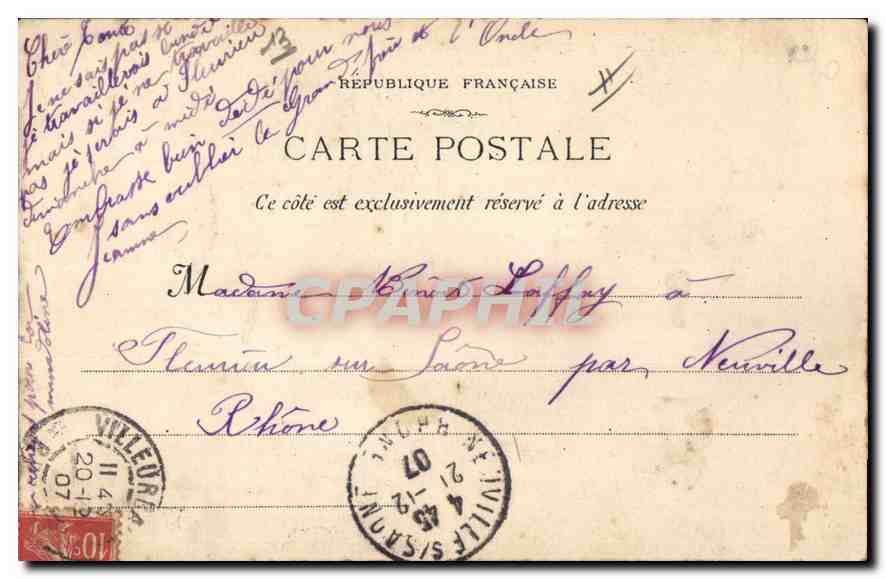 Chère Tante
Je ne sais pas si
je travaillerais lundi
mais si je ne travaille
pas je serais à Fleurieu
dimanche à midi
Embrasse bien dédé pour nous
sans oublier le Grand et l'Oncle
Jeanne
13
RÉPUBLIQUE FRANÇAISE
CARTE POSTALE
Ce côté est exclusivement réservé à l'adresse
Madame Benoit Laffay à
Fleurieu sur Saône par Neuville
Rhône
GRAPHIL
pour toi
VILLEURBA
11 4
20-12
07
10
NEUVILLE S/SAONE RHONE
4 45
21-12
07